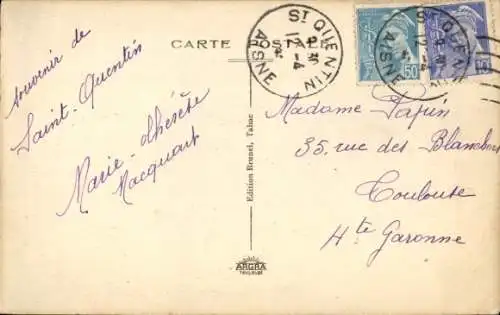 CARTE POSTALE
Souvenir de
Saint-Quentin
Marie-Thérèse
Macquart
Edition Brunel, Tabac
ST QUENTIN
AISNE
ST QUENTIN
AISNE
50
10
Madame Papin
35, rue des Blanchers
Toulouse
Hte Garonne
ARGRA